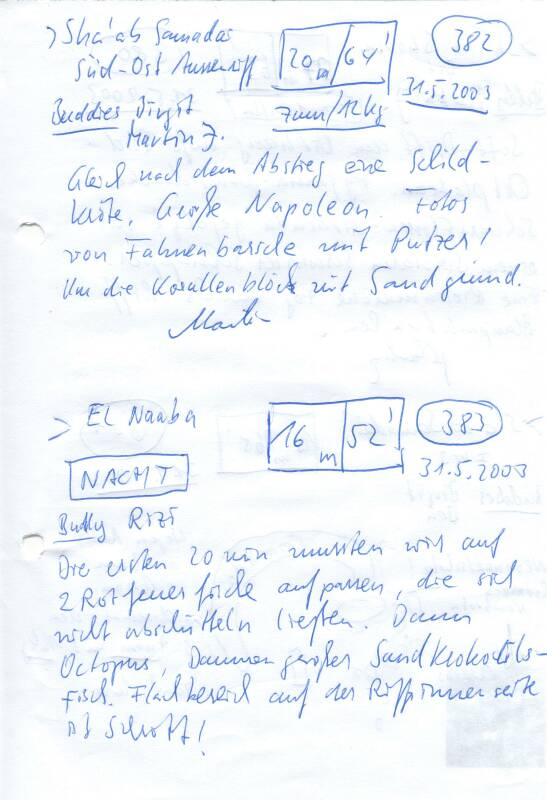 > Sha'ab Samadai
Süd-Ost Aussenriff
20 m / 64'
382
31.5.2003
7mm/12kg
Buddies Birgit
Martin J.
Gleich nach dem Abstieg eine Schild-
kröte. Große Napoleon. Fotos
von Fahnenbarsche mit Putzer!
Um die Korallenblöcke mit Sandgrund.
Martin
> El Naaba
16 m 52'
383
31.5.2003
NACHT
Buddy Rizi
Die ersten 20 min mussten wir auf
2 Rotfeuerfische aufpassen, die sich
nicht abschütteln ließen. Dann
Octopus, Daumen großer Sandkrokodils-
fisch. Flachbereich auf der Riffinnenseite
ist Schrott!